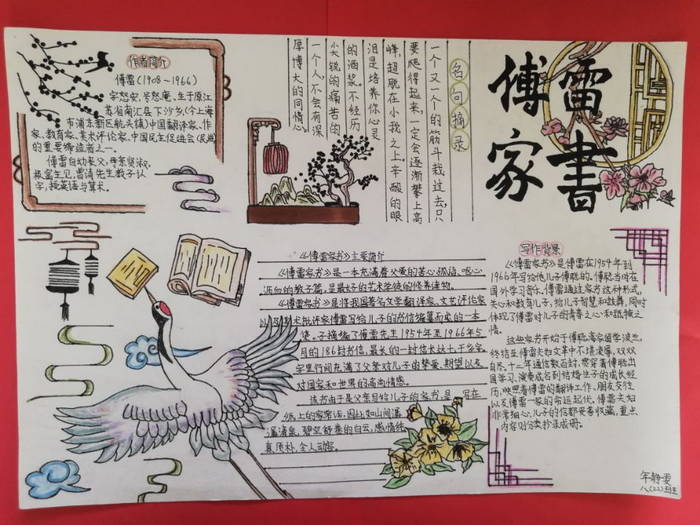 傅雷
家书
作者简介
傅雷(1908-1966)
字怒安,号怒庵,生于原江
苏省南汇县下沙乡(今上海
市浦东新区航头镇)中国翻译家、作
家、教育家、美术评论家,中国民主促进会(民进)
的重要缔造者之一。
傅雷自幼丧父,
字,授英语与算术。
名句摘录
一个又一个的筋斗栽过去,只
要爬得起来,一定会逐渐攀上高
峰,超脱在小我之上。辛酸的眼
泪是培养你心灵
的酒浆。不经历
尖锐的痛苦的
一个人,不会有深
厚博大的同情心。
《傅雷家书》主要简介
《傅雷家书》是一本充满着父爱的苦心孤诣、呕心
沥血的教子篇,是最好的艺术学徒的修养读物。
《傅雷家书》是将我国著名文学翻译家、文艺评论家
以及美术批评家傅雷写给儿子的书信编纂而来的一本
集子,摘编了傅雷先生1954年至1966年5
月的186封书信,最长的一封信长达七千多字。
字里行间充满了父亲对儿子的挚爱、期望以及
对国家和世界的高尚情感。
该书由于是父母写给儿子的家书,是写在
纸上的家常话,因此如山间潺
潺清泉,碧空舒卷的白云,感情纯
真、质朴,令人动容。
写作背景
《傅雷家书》是傅雷在1954年到
1966年写给他儿子傅聪的。傅聪当时在
国外学习音乐。傅雷通过家书这种形式,
关心和教育儿子,给儿子智慧和鼓舞,同时
体现了傅雷对儿子的
情。
这些家书开始于傅聪离家留学波兰,
终结至傅雷夫妇文革中不堪凌辱,双双
自尽。十二年通信数百封,贯穿着傅聪出
国学习、演奏成名到结婚生子的成长经
历,映照着傅雷的翻译工作、朋友交往
以及傅雷一家的命运起伏。傅雷夫妇
非常细心,儿子的信都妥善收藏,重点
内容则分类抄录成册。